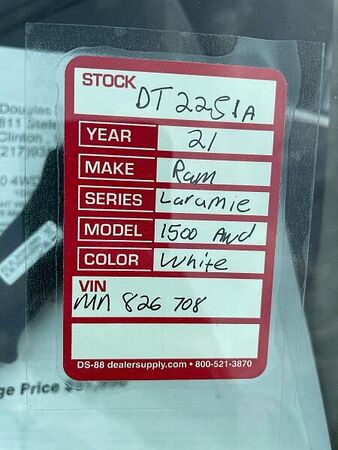 STOCK DT2251A
YEAR 21
MAKE Ram
SERIES Laramie
MODEL 1500 Awd
COLOR White
VIN
MN 826 708
DS-88 dealersupply.com • 800-521-3870
Douglas
811 State
Clinton
(217)93
ge Price